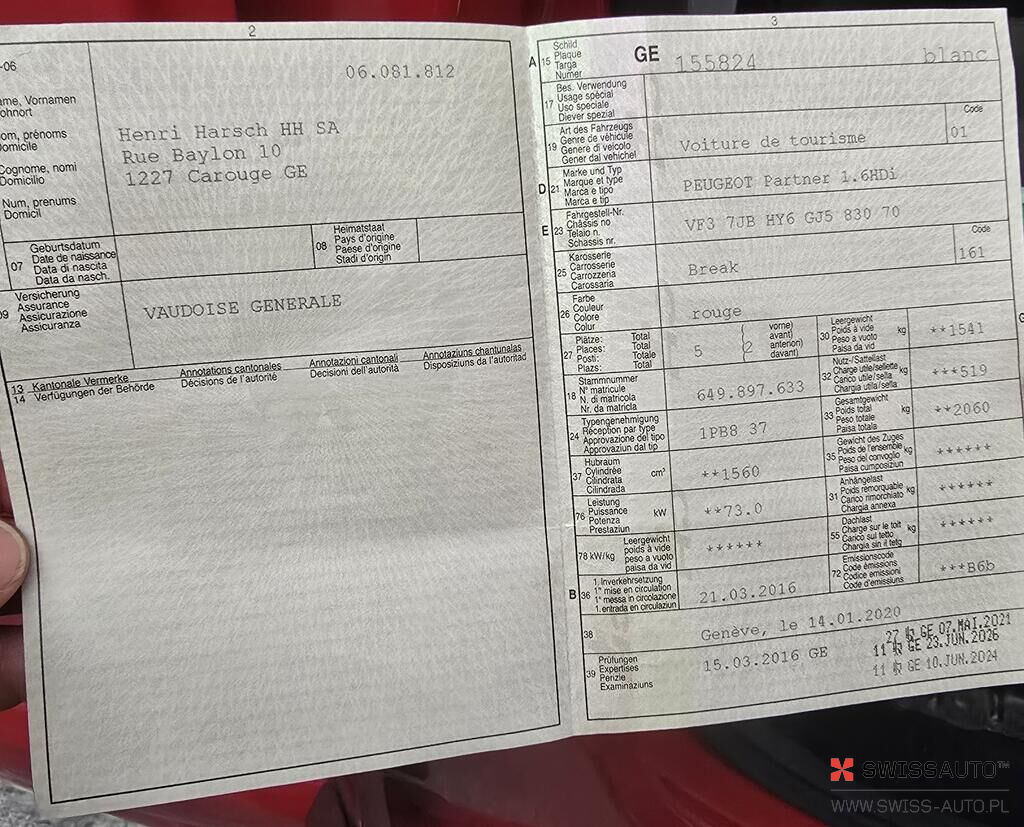 2
-06
06.081.812
ame, Vornamen
ohnort
om, prénoms
Domicile
Cognome, nomi
Domicilio
Num, prenums
Domicil
Henri Harsch HH SA
Rue Baylon 10
1227 Carouge GE
07
Geburtsdatum
Date de naissance
Data di nascita
Data da nasch.
08
Heimatstaat
Pays d'origine
Paese d'origine
Stadi d'origin
09
Versicherung
Assurance
Assicurazione
Assicuranza
VAUDOISE GENERALE
13 Kantonale Vermerke
14 Verfügungen der Behörde
Annotations cantonales
Décisions de l'autorité
Annotazioni cantonali
Decisioni dell'autorità
Annotaziuns chantunalas
Disposiziuns da l'autoritad
3
A 15
Schild
Plaque
Targa
Numer
GE 155824 blanc
17
Bes. Verwendung
Usage spécial
Uso speciale
Diever spezial
19
Art des Fahrzeugs
Genre de véhicule
Genere di veicolo
Gener dal vehichel
Voiture de tourisme
Code
01
D 21
Marke und Typ
Marque et type
Marca e tipo
Marca e tip
PEUGEOT Partner 1.6HDi
E 23
Fahrgestell-Nr.
Châssis no
Telaio n.
Schassis nr.
VF3 7JB HY6 GJ5 830 70
25
Karosserie
Carrosserie
Carrozzeria
Carossaria
Break
Code
161
26
Farbe
Couleur
Colore
Colur
rouge
27
Plätze: Total
Places: Total
Posti: Totale
Plazs: Total
5 (2
vorne)
avant)
anteriori)
davant)
30
Leergewicht
Poids à vide kg
Peso a vuoto
Paisa da vid
**1541
18
Stammnummer
N° matricule
N. di matricola
Nr. da matricla
649.897.633
32
Nutz-/Sattellast
Charge utile/sellette
Carico utile/sella kg
Chargia utila/sella
***519
24
Typengenehmigung
Réception par type
Approvazione del tipo
Approvaziun dal tip
1PB8 37
33
Gesamtgewicht
Poids total kg
Peso totale
Paisa totala
**2060
37
Hubraum
Cylindrée cm³
Cilindrata
Cilindrada
**1560
35
Gewicht des Zuges
Poids de l'ensemble
Peso del convoglio kg
Paisa cumposiziun
******
76
Leistung
Puissance kW
Potenza
Prestaziun
**73.0
31
Anhängelast
Poids remorquable kg
Carico rimorchiato
Chargia annexa
******
78 kW/kg
Leergewicht
poids à vide
peso a vuoto
paisa da vid
******
55
Dachlast
Charge sur le toit kg
Carico sul tetto
Chargia sin il tetg
******
B 36
1. Inverkehrsetzung
1re mise en circulation
1a messa in circolazione
1. entrada en circulaziun
21.03.2016
72
Emissionscode
Code émissions
Codice emissioni
Code d'emissiuns
***B6b
38
Genève, le 14.01.2020
39
Prüfungen
Expertises
Perizie
Examinaziuns
15.03.2016 GE
27 GE 07.MAI.2021
11 GE 23.JUN.2026
11 GE 10.JUN.2024
SWISSAUTO™
WWW.SWISS-AUTO.PL